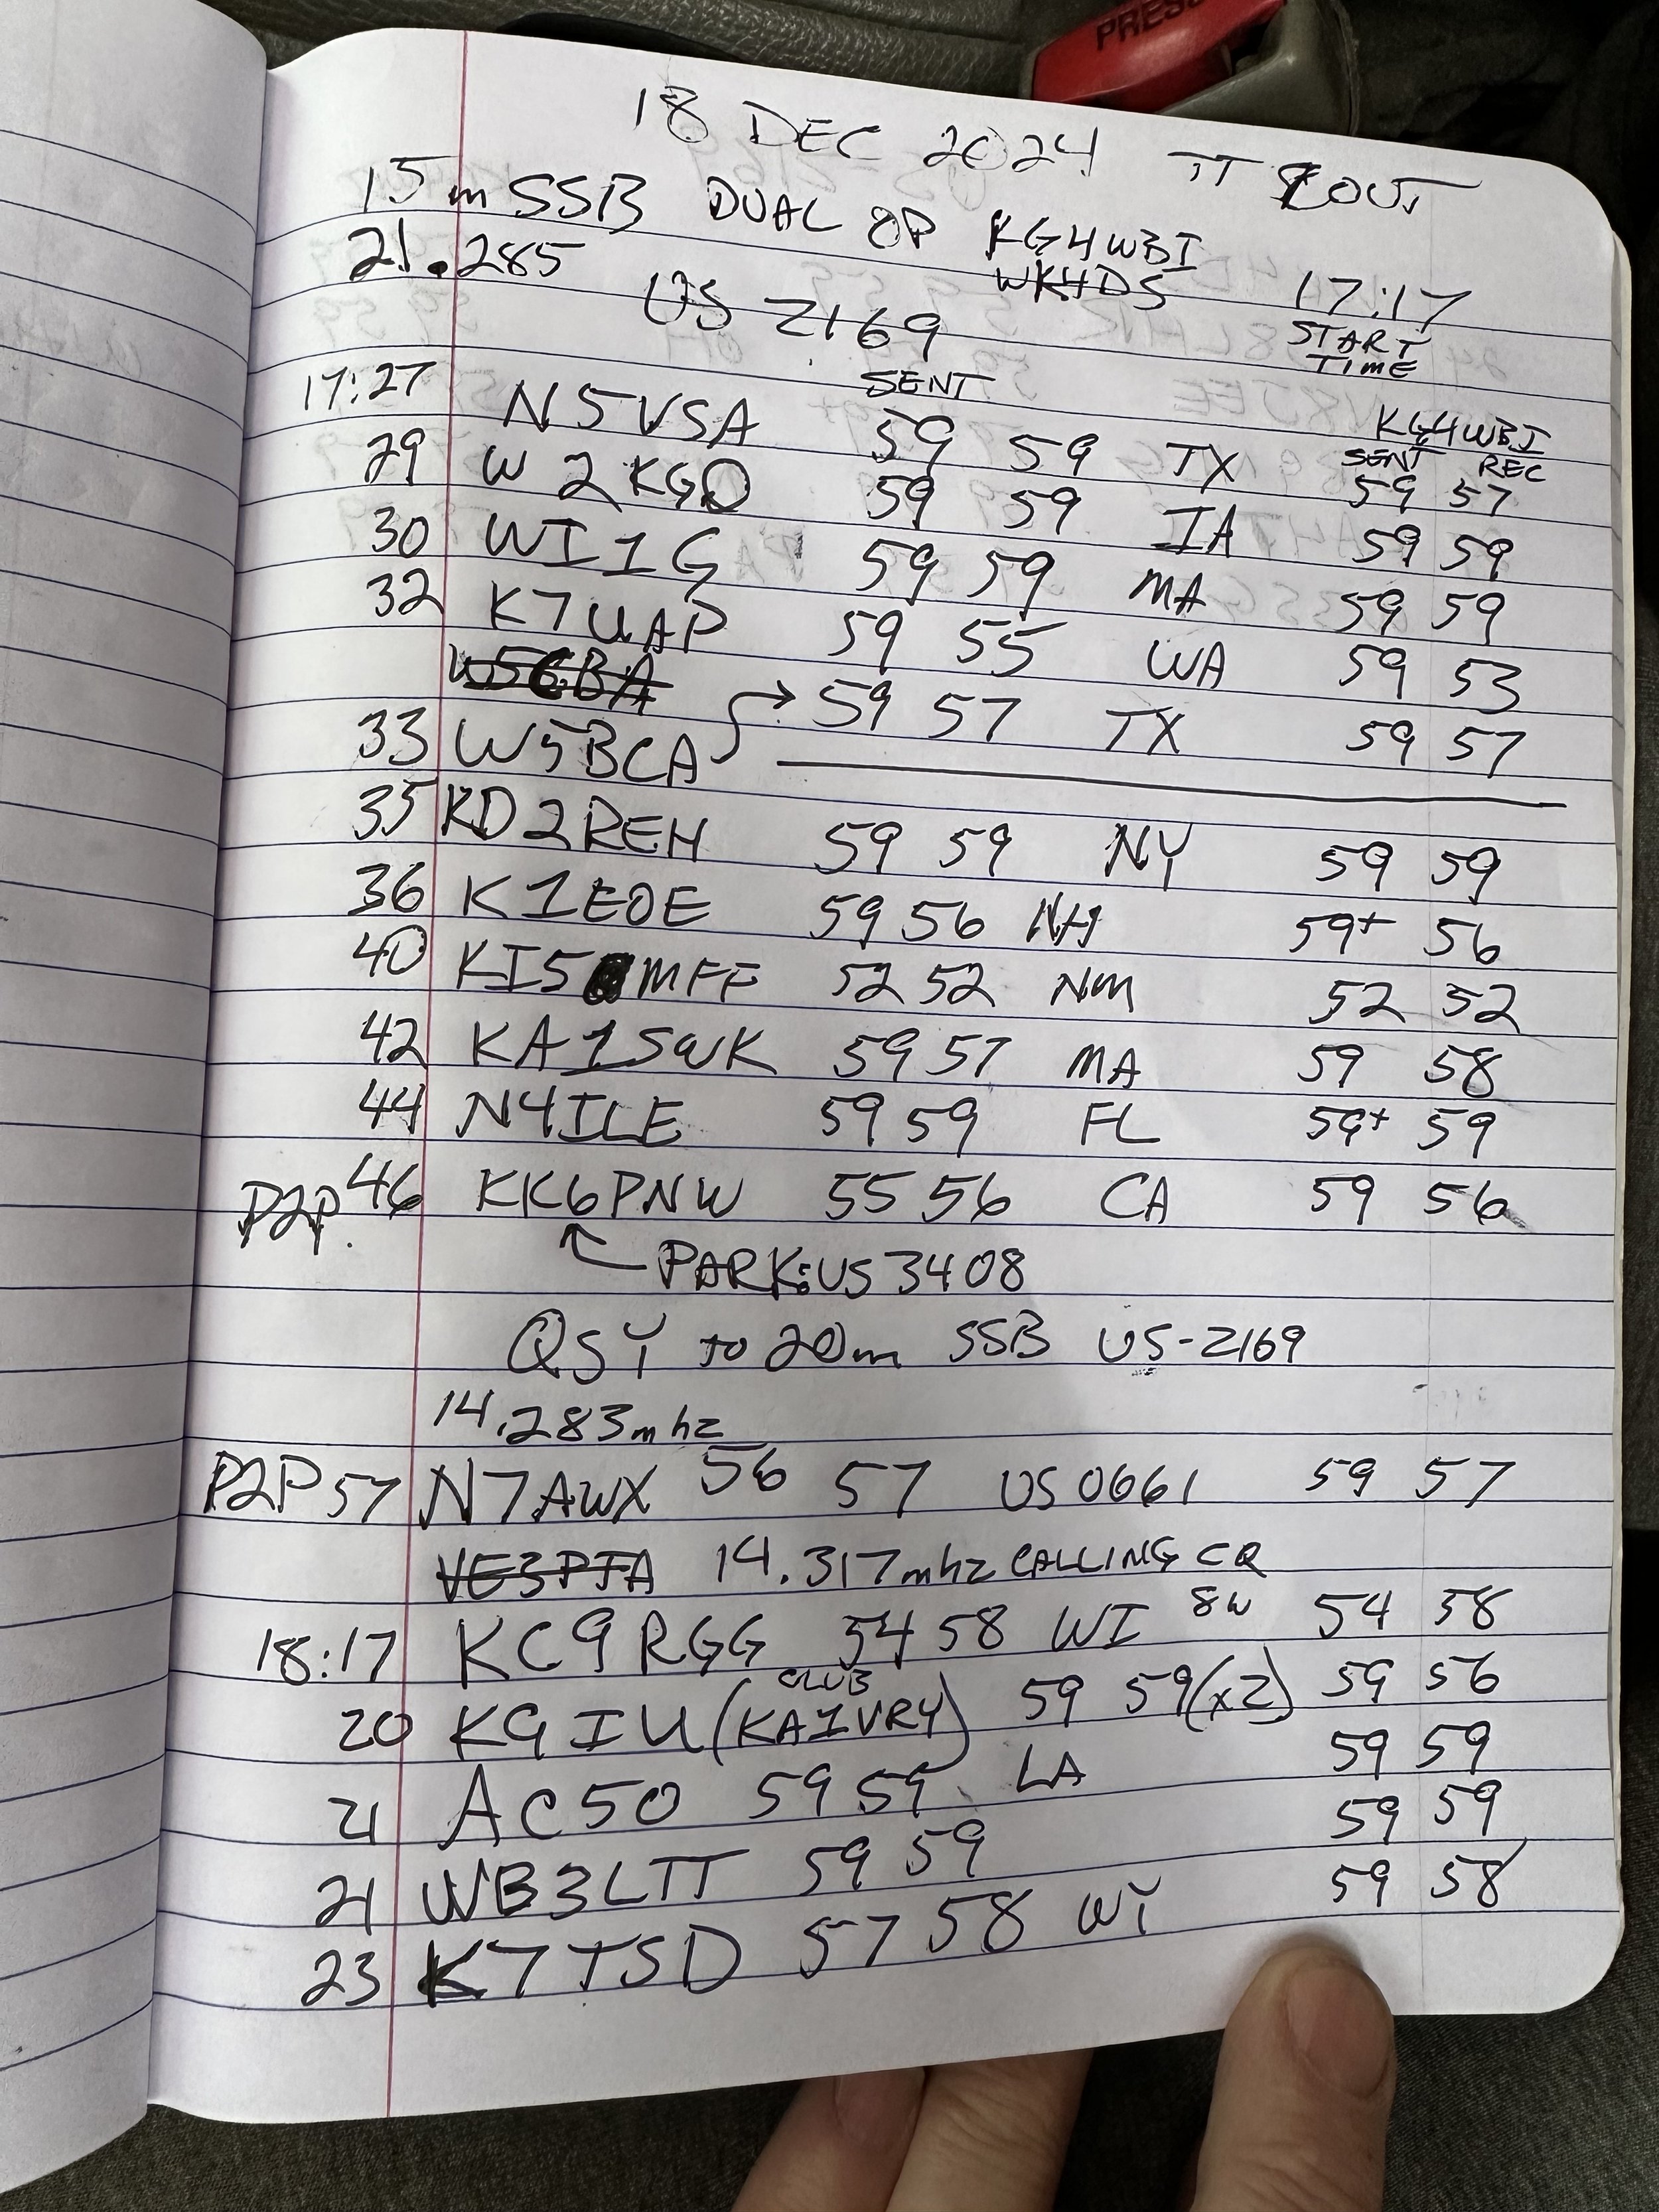 PRESS
18 DEC 2024 TT SCOUT
15m SSB DUAL OP KG4WBI
21.285 WK4DS 17:17
US 2169 START TIME
SENT KG4WBI
SENT REC
17:27 N5VSA 59 59 TX 59 57
29 W2KGO 59 59 IA 59 59
30 WI1G 59 59 MA 59 59
32 K7UAP 59 55 WA 59 53
W5CBA
33 W5BCA → 59 57 TX 59 57
35 KD2REH 59 59 NY 59 59
36 K1EOE 59 56 NH 59+ 56
40 KI5MFF 52 52 NM 52 52
42 KA1SWK 59 57 MA 59 58
44 N4ILE 59 59 FL 59+ 59
P2P 46 KK6PNW 55 56 CA 59 56
PARK: US 3408
QSY to 20m SSB US-2169
14.283mhz
P2P 57 N7AWX 56 57 US 0661 59 57
VE3PTA 14.317mhz CALLING CQ
18:17 KC9RGG 54 58 WI 8W 54 58
20 K9IU (CLUB KA1VRY) 59 59 (x2) 59 56
21 AC5O 59 59 LA 59 59
21 WB3LTT 59 59 59 59
23 K7TSD 57 58 WY 59 58